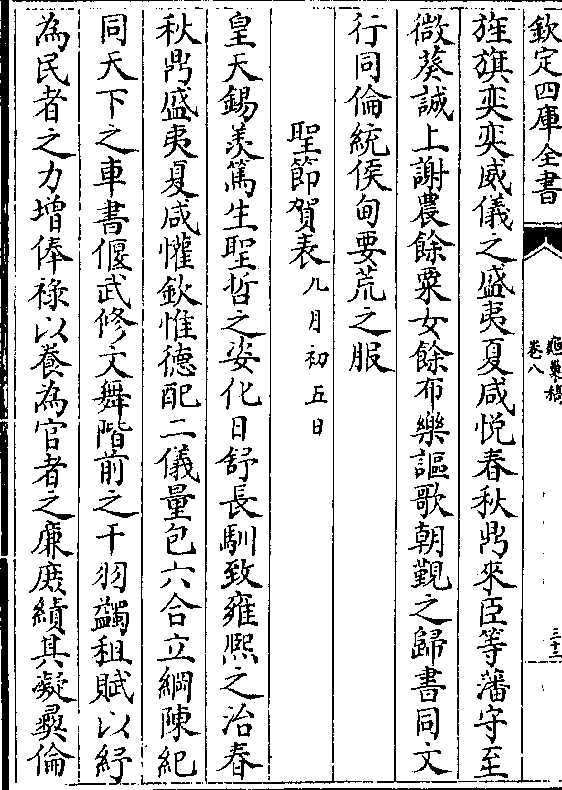 欽定四庫全書
龜巢稿
卷八
三十二
旌旗奕奕威儀之盛夷夏咸悦春秋鼎來臣等藩守至
微葵誠上謝農餘粟女餘布樂謳歌朝覲之歸書同文
行同倫統侯甸要荒之服
聖節賀表九月初五日
皇天錫羨篤生聖哲之姿化日舒長馴致雍熙之治春
秋鼎盛夷夏咸懽欽惟德配二儀量包六合立綱陳紀
同天下之車書偃武修文舞階前之干羽蠲租賦以紓
為民者之力增俸祿以養為官者之廉庶績其凝彝倫